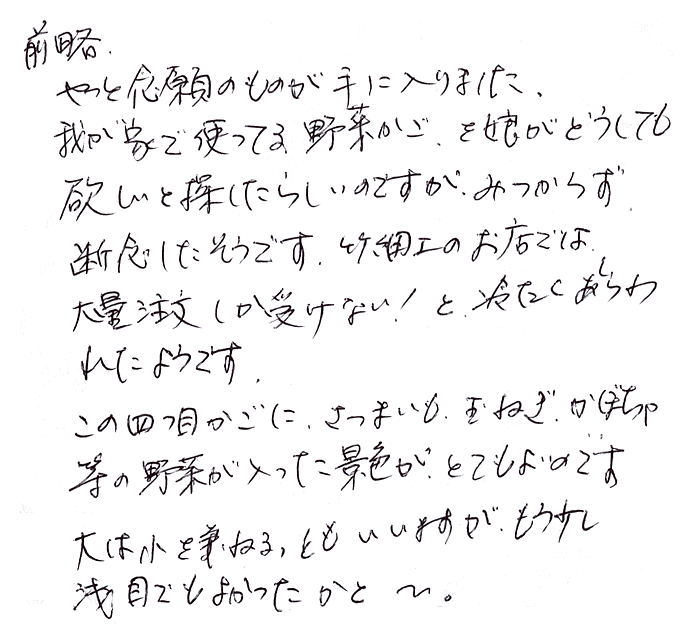 前略.
やっと念願のものが手に入りました、
我が家で使ってる野菜かご、を娘がどうしても
欲しいと探したらしいのですが、みつからず
断念したそうです、竹細工のお店では、
大量注文しか受けない!と、冷たくあしらわ
れたようです、
この四つ目かごに、さつまいも、玉ねぎ、かぼちゃ
等の野菜が入った景色が、とてもよいのです
大は小を兼ねる、ともいいますが、もう少し
浅目でもよかったかと〜。